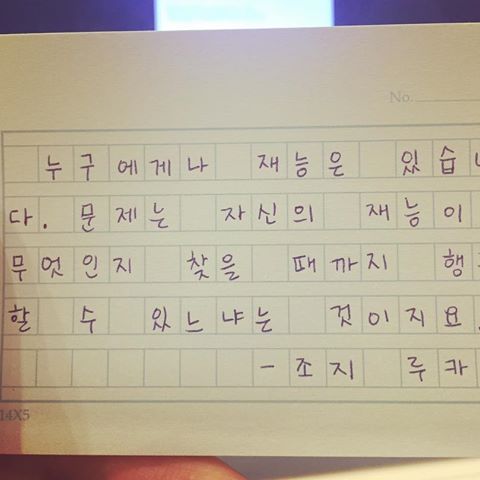 No.
누구에게나 재능은 있습
다. 문제는 자신의 재능이
무엇인지 찾을 때까지 행
할 수 있느냐는 것이지요.
- 조지 루카
14X5